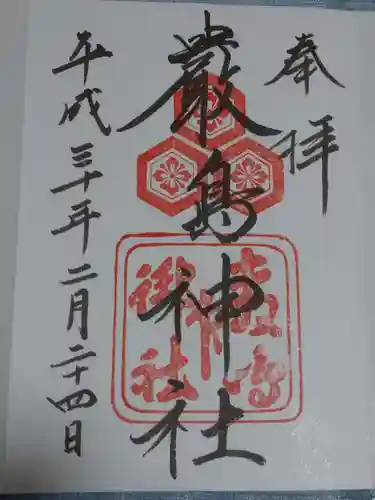 奉拝
嚴島神社
平成三十年二月二十四日